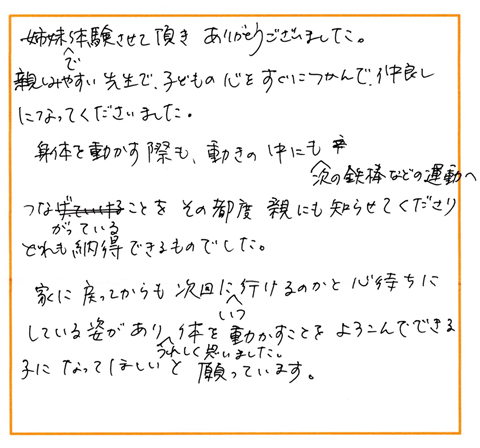 姉妹で体験させて頂き ありがとうございました。
親しみやすい先生で、子どもの心をすぐにつかんで、仲良し
になってくださいました。
身体を動かす際も、動きの中にも 次の鉄棒などの運動へ
つながっていることを その都度 親にも知らせてくださり
どれも納得できるものでした。
家に戻ってからも 次回はいつ行けるのかと 心待ちに
している姿があり、うれしく思いました。体を動かすことを よろこんでできる
子になってほしいと 願っています。